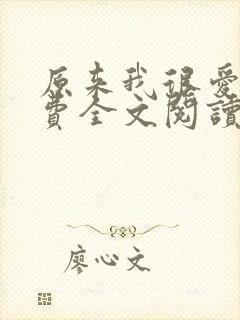 原来我很爱
费全文閱讀
廖心文